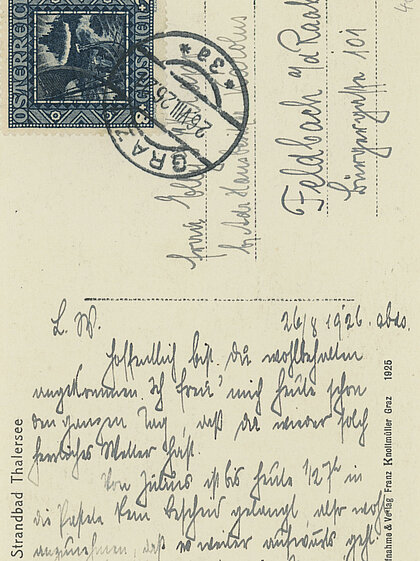 ÖSTERREICH
GROSCHEN
GRAZ
26.VIII.26
*3a*
Feldbach a/d Raab
Bürgergasse 101
L. W.
26/8 1926. abds.
Hoffentlich bist du wohlbehalten
angekommen. Ich freu' mich heute schon
den ganzen Tag, daß du wieder solch
herrliches Wetter hast.
Von Julius ist bis heute 1/2 7h in
die Pastele kein Bescheid gelangt, also wohl
anzunehmen, daß es weiter aufwärts geht.
Strandbad Thalersee
Aufnahme & Verlag Franz Knollmüller Graz 1925